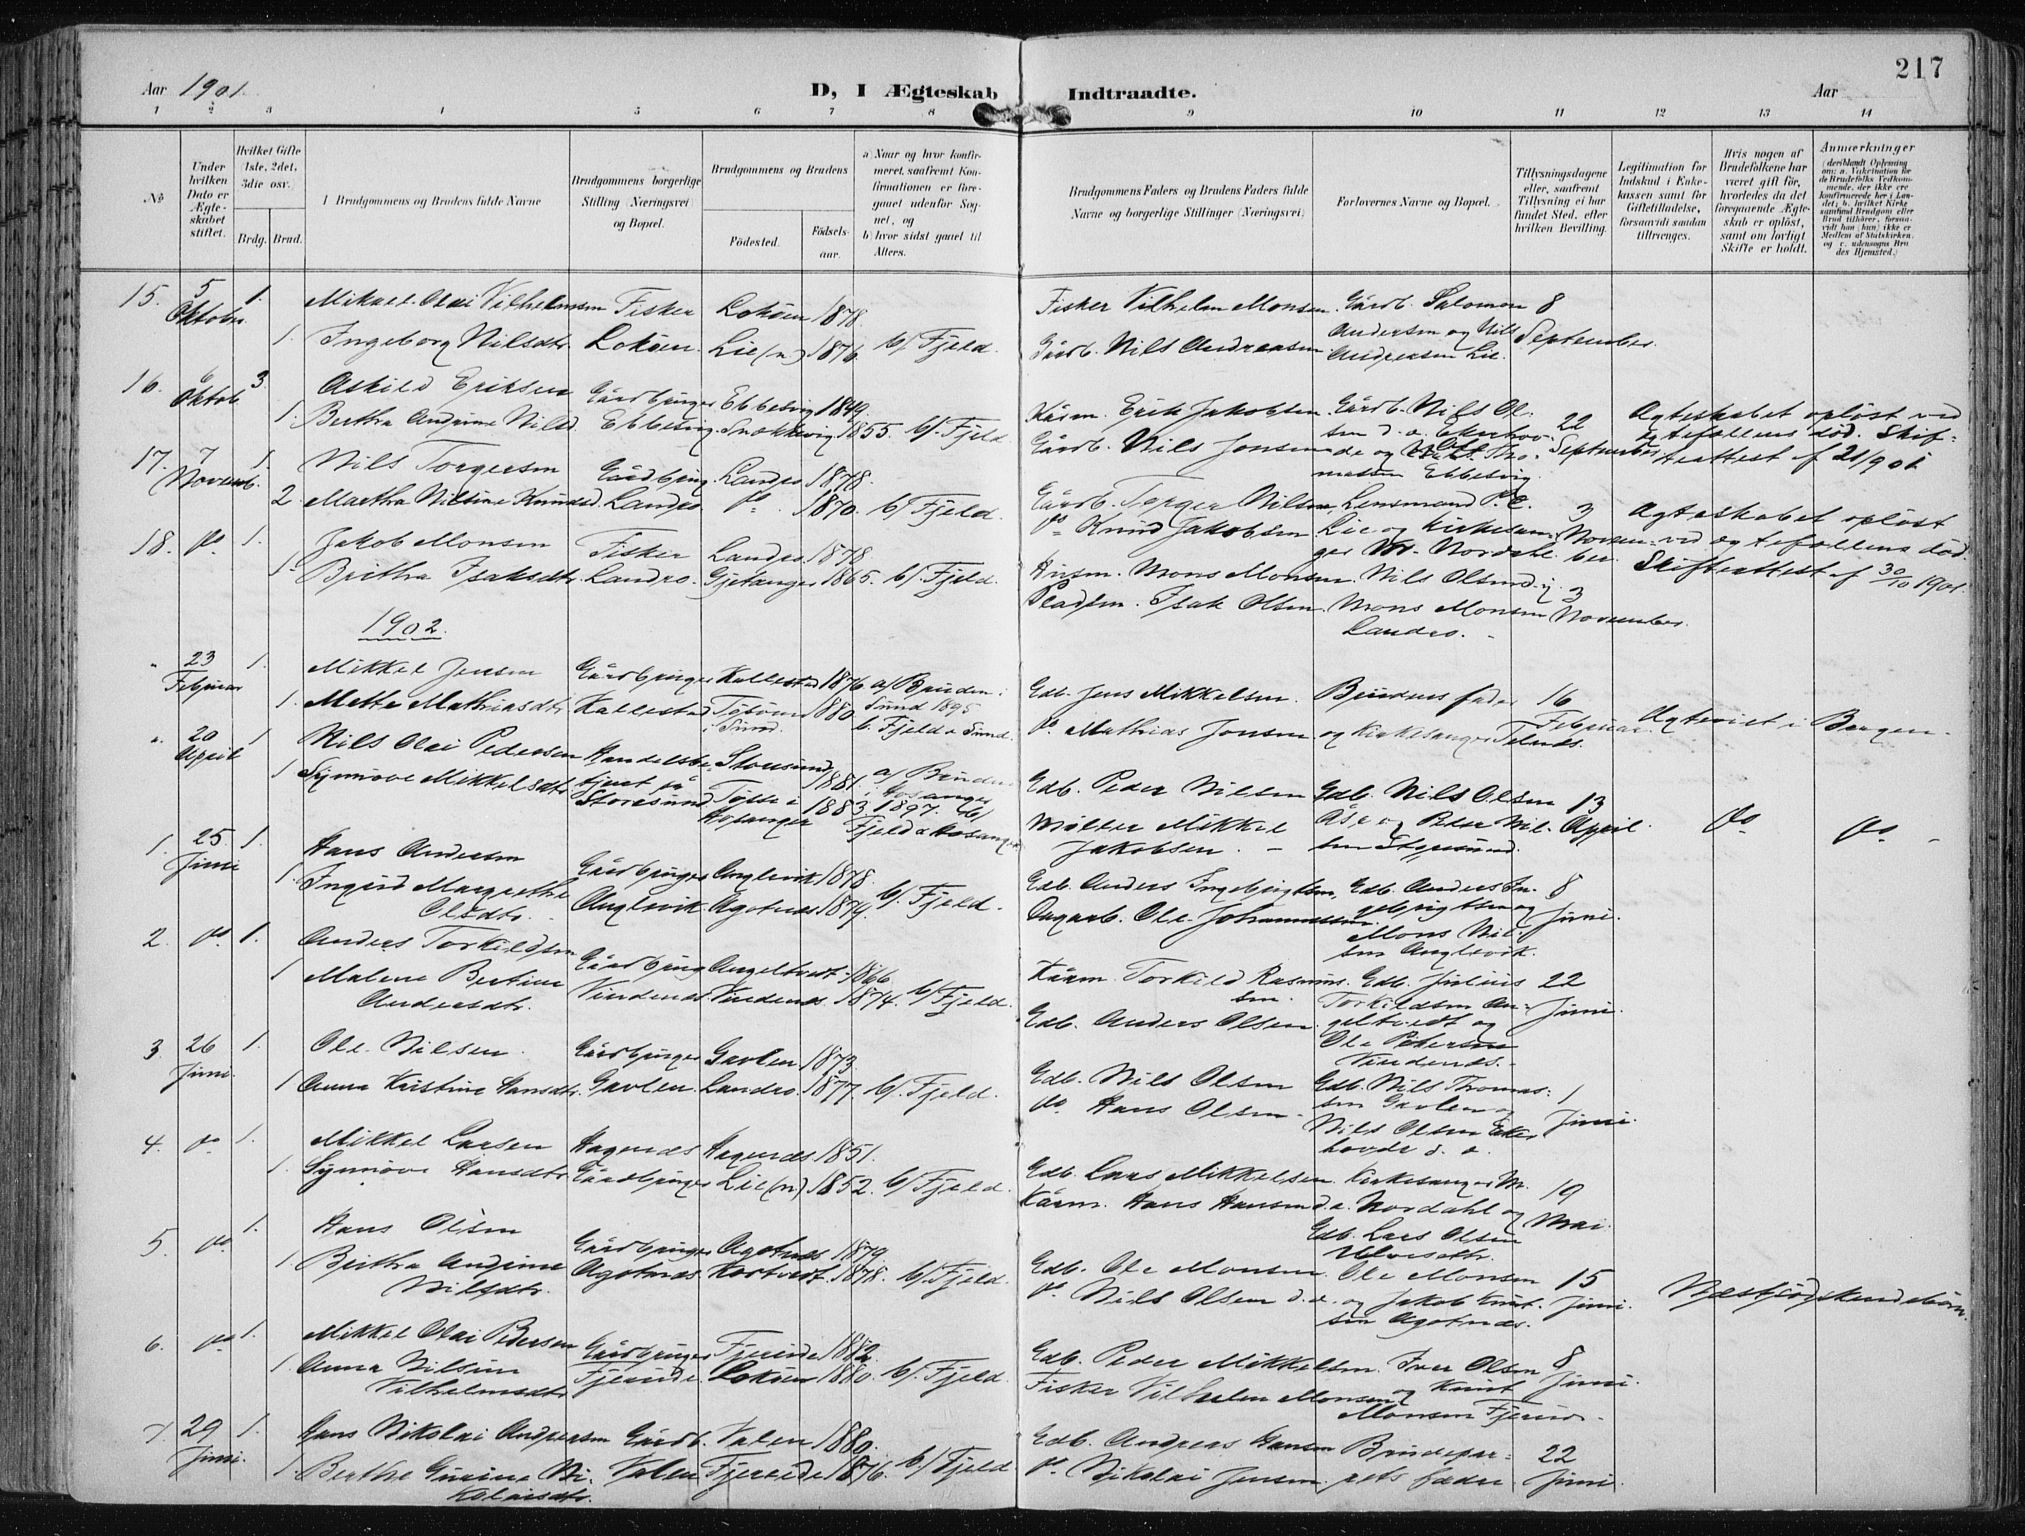 217
Aar 1901.
D, I Ægteskab Indtraadte.
Aar
1 2 3 4 5 6 7 8 9 10 11 12 13 14
No
Under hvilken Dato er Ægteskabet stiftet.
Hvilket Gifte 1ste, 2det, 3die osv.
Brdg. Brud.
Brudgommens og Brudens fulde Navne
Brudgommens borgerlige Stilling (Næringsvei) og Bopæl.
Brudgommens og Brudens
Fødested. Fødselsaar.
a) Naar og hvor konfirmeret, saafremt Konfirmationen er foregaaet udenfor Sognet, og
b) hvor sidst gaaet til Alters.
Brudgommens Faders og Brudens Faders fulde Navne og borgerlige Stillinger (Næringsvei)
Forlovernes Navne og Bopæl.
Tillysningsdagene eller, saafremt Tillysning ei har fundet Sted, efter hvilken Bevilling.
Legitimation for Indskud i Enkekassen samt for Giftetilladelse, forsaavidt saadan tiltrænges.
Hvis nogen af Brudefolkene har været gift før, hvorledes da det foregaaende Ægteskab er opløst, samt om lovligt Skifte er holdt.
Anmærkninger
15. 5 Oktober 1. Mikael Olai Vilhelmsen Fisker Lokøen 1878. Fisker Vilhelm Monsen. Gårdb. Salomon 8
1. Ingeborg Nilsdtr. Lokøen. Lie (n.) 1876. b/ Fjeld. Gårdb. Nils Andreasen. Andersen og Nils Andreasen Lie. September.
16. 6 Oktob. 3. Askild Eriksen Gårdbruger Ebbesvig 1849. Kårm. Erik Jakobsen. Gårdb. Nils Olsen d. a. Ekerhovde og 22 Ægteskabet opløst ved
1. Bertha Andrine Nilsd. Ebbesvig. Snekkevig 1855. b/. Fjeld. Gårdb. Nils Jonsen Ebbesvig. September ægtefællens død. Skifteattest af 21/9 01.
17. 7 Novemb. 1. Nils Torgersen Gårdbrug. Landro 1878. Gårdb. Torger Nilsen. Lensmand 3 Ægteskabet opløst
2. Martha Nilsine Knudsd. Landro. do. 1870. b/ Fjeld. do Knud Jakobsen Lie og Kirkesanger Nordahl November. ved ægtefællens død. Skifteattest af 30/10 1901.
18. do. 1. Jakob Monsen Fisker Landro 1878. Husm. Mons Monsen. Nils Olsen og 3
1. Britha Isaksdtr. Landro. Gjetanger 1865. b/. Fjeld. Pladsm. Isak Olsen. Mons Monsen Landro. November.
1902.
" 23 Februar 1. Mikkel Jensen Gårdbruger Kallestad 1876 a/ Bruden i Sund 1895 Gdb. Jens Mikkelsen. Brudens fader 16 Februar
1. Mette Mathiasdtr. Kallestad i Sund. 1880 b. Fjeld o Sund. do Mathias Jonsen og Kirkesanger Telnes. Ægteviet i Bergen.
" 20 April 1 Nils Olai Pedersen Handelsbetjent på Storesund Storesund 1881. a/ Bruden i Hosanger 1897. Gdb. Peder Nilsen Gdb. Nils Olsen 13 April.
1 Synnøve Mikkelsdtr. Hosanger 1883 b/ Fjeld o Hosanger Møller Mikkel Jakobsen. Åse og Peter Nilsen do do
1. 25. Juni 1. Hans Andersen Gårdbruger Anglevik 1878. Gdb. Anders Ingebrigtsen. Gdb. Anders Ingebrigtsen og 8 Juni.
1. Ingrid Margrethe Olsdtr. Anglevik. Agotnæs 1874. b/. Fjeld. Dagarb. Ole Johannessen. Mons Nilsen Anglevik.
2. do 1. Anders Torkildsen Gårdbrug Angeltvedt 1866 Kårm. Torkild Rasmussen. Gdb. Julius Torkildsen Angeltvedt og 22 Juni.
1 Malene Bertine Andersdtr. Vindenæs Vindenæs. 1874. b/ Fjeld. Gdb. Anders Olsen Ole Petersen Vindenæs.
3. 26 Juni. 1. Ole Nilsen. Gårdbruger Gavlen 1873. Gdb. Nils Olsen Gdb. Nils Thomassen Gavlen og 1 Juni.
1 Anna Kristine Hansdtr. Gavlen. Landro. 1877. b/. Fjeld. do. Hans Olsen. Nils Olsen Ekerhovde d. a.
4. do 1. Mikkel Larsen Hagenæs Hagenæs 1851. Gdb. Lars Mikkelsen. Kirkesanger M. Nordahl og 19 Mai.
1. Synnøve Hansdtr. Gårdbruger Lie (n.) 1852. b/ Fjeld. Kårm. Hans Hansen d. a. Gdb. Lars Olsen Ulvesæth.
5. do 1. Hans Olsen Gårdbruger Agotnæs 1879. Gdb. Ole Monsen. Ole Monsen 15 Juni.
1 Britha Andrine Nilsdtr. Agotnæs. Kortvedt. 1878. b/. Fjeld. do Nils Olsen d. a. og Jakob Knutsen Agotnæs. Næstsødskendebørn.
6. do 1. Mikkel Olai Pedersen Gårdbruger Fjæreide 1882. Gdb. Peder Mikkelsen. Iver Olsen 8 Juni.
1. Anna Nilsine Vilhelmsdtr. Fjæreide. Lokøen 1880. b/. Fjeld. Fisker Vilhelm Monsen og Knut Monsen
7. 29 Juni. 1. Hans Nikolai Andersen Gårdb. Valen 1880. Gdb. Andreas Hansen Brudeparrets fædre 22 Juni.
1 Berthe Gurine Nikolaisdtr. Valen Fjæreide 1876. b/ Fjeld do Nikolai Jensen.